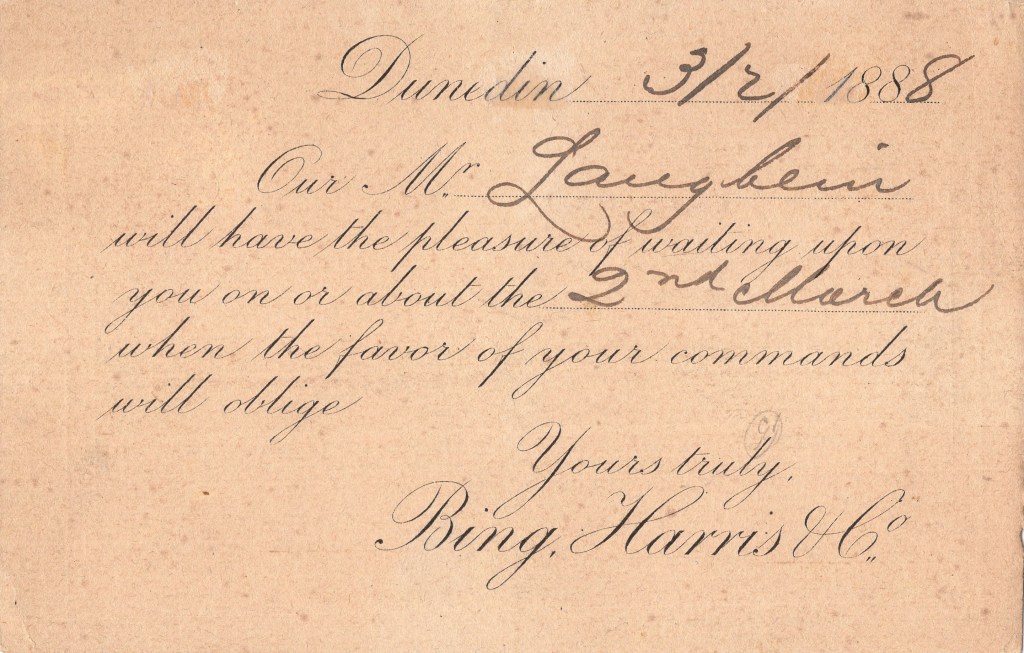 Dunedin 3/2/1888
Our Mr. Langbein
will have the pleasure of waiting upon
you on or about the 2nd March
when the favor of your commands
will oblige
Yours truly,
Bing, Harris & Co.